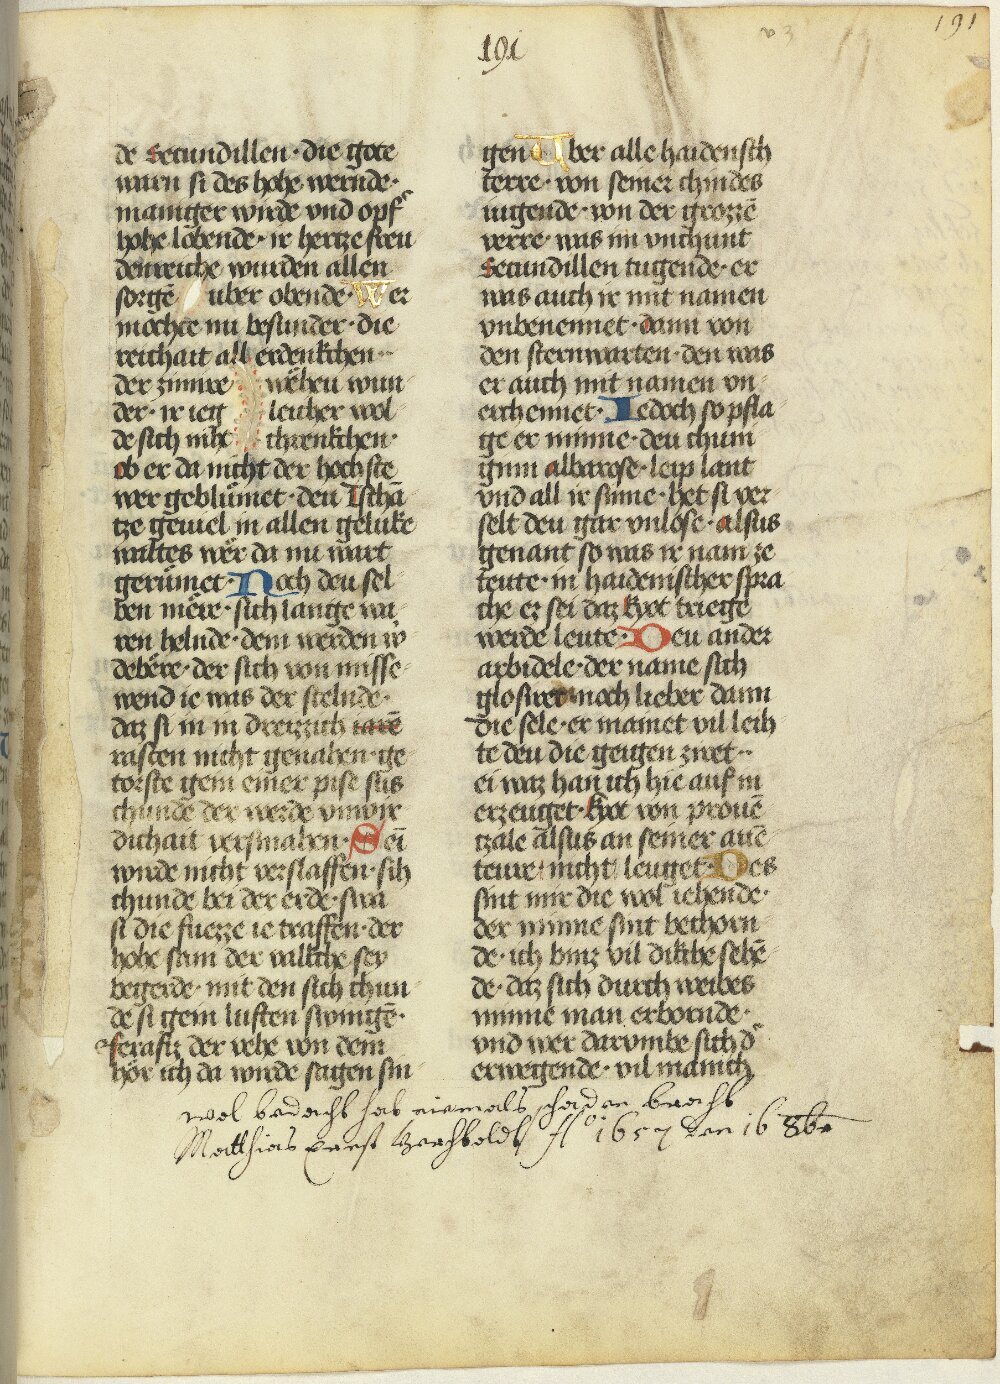 191
191
de Secundillen· die gote
warn si des hohe wernde·
maniger wirde vnd opf͛
hohe lobende· ir hertze freu
denreiche wurden allen
sorgē uber obende· Wer
mochte nu besunder· die
reichait all erdenkchen··
der zimire wēheu wun
der· ir ieg leicher wol
de sich niht chrenkchen·
ob er da nicht der hochste
wer geblümet· den Tschā
tze geuiel in allen geluke
waltes wēr da nu wart
gerümet· Noch deu sel
ben mēre· sich lange wa
ren helnde· dem werden w
debēre· der sich von misse
wend ie was der stelnde·
daz si in in dreizzich iarē
rasten nicht genahen· ge
torste gein einer pise sus
chunde der werde vnwir
dichait versmahen· Sei
wirde nicht verslaffen· sih
chunde bei der erde· swa
si die fuezze ie traffen· der
hohe sam der valkche sey
begerde· mit den sich chun
de si gein luften swingē·
serafiz der vehe von dem
hör ich da wirde sagen sin
gen Uber alle haidensch
terre· von seiner chindes
iugende· von der grozzē
verre· was im vnchunt
Secundillen tugende· er
was auch ir mit namen
vnbenennet· dann von
den sternwarten· den was
er auch mit namen vn
erchennet· Iedoch so pfla
ge er minne· deu chuni
ginn albarose· leip lant
vnd all ir sinne· het si ver
selt deu gar vnlose· alsus
genant so was ir nam ze
teute· in haidenischer spra
che er sei daz kyot triege
werde leute· Deu ander
arbidele· der name sich
glosiret noch lieber dann
die sele· er mamet vil leih
te deu die geigen zwet··
ei waz han ich hie auf in
erzeuget· kyot von prouē
tzale alsus an seiner auē
teure nicht leuget· Des
sint mir die wol iehende·
der minne sint bethorn
de· ich binz vil dikche sehē
de· daz sich durch weibes
minne man erbornde·
vnd wer darvmbe sich d͛
erwegende· vil manich
wol bedacht hat niemals schaden bracht
Matthias Ernst Berchboldt A° 1657 den 16 8br